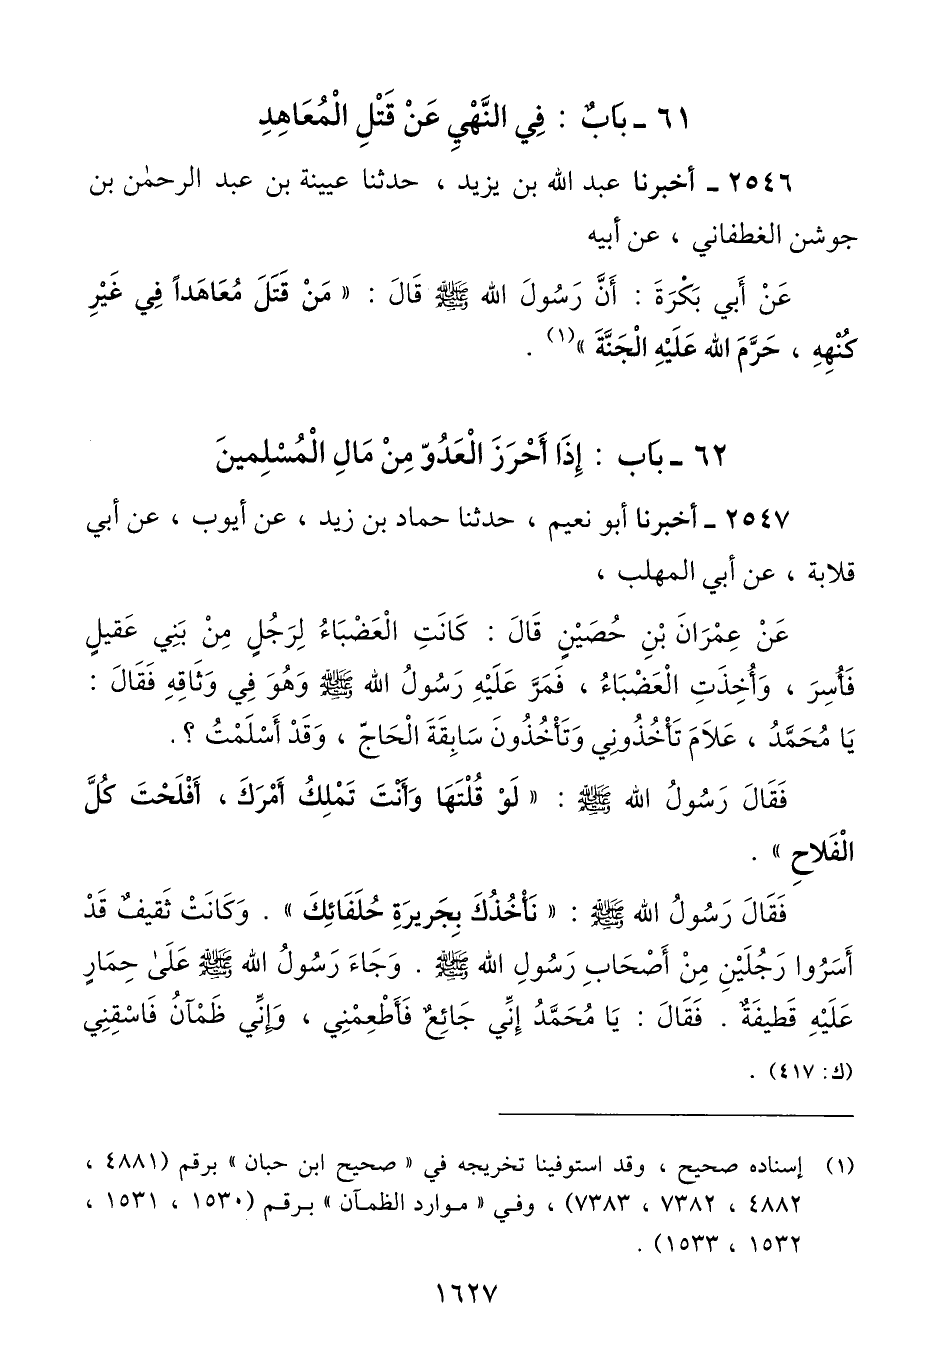 ٦١ ـ بَابٌ : فِي النَّهْيِ عَنْ قَتْلِ الْمُعَاهِدِ
٢٥٤٦ ـ أخبرنا عبد الله بن يزيد ، حدثنا عيينة بن عبد الرحمٰن بن
جوشن الغطفاني ، عن أبيه
عَنْ أَبِي بَكْرَةَ : أَنَّ رَسُولَ الله ﷺ قَالَ : « مَنْ قَتَلَ مُعَاهَداً فِي غَيْرِ
كُنْهِهِ ، حَرَّمَ الله عَلَيْهِ الْجَنَّةَ »(١) .
٦٢ ـ بَاب : إِذَا أَحْرَزَ الْعَدُوّ مِنْ مَالِ الْمُسْلِمينَ
٢٥٤٧ ـ أخبرنا أبو نعيم ، حدثنا حماد بن زيد ، عن أيوب ، عن أبي
قلابة ، عن أبي المهلب ،
عَنْ عِمْرَانَ بْنِ حُصَيْنٍ قَالَ : كَانَتِ الْعَضْبَاءُ لِرَجُلٍ مِنْ بَنِي عَقيلٍ
فَأُسِرَ ، وَأُخِذَتِ الْعَضْبَاءُ ، فَمَرَّ عَلَيْهِ رَسُولُ الله ﷺ وَهُوَ فِي وَثَاقِهِ فَقَالَ :
يَا مُحَمَّدُ ، عَلامَ تَأْخُذُونِي وَتَأْخُذُونَ سَابِقَةَ الْحَاجّ ، وَقَدْ أَسْلَمْتُ ؟.
فَقَالَ رَسُولُ الله ﷺ : « لَوْ قُلْتَهَا وَأَنْتَ تَمْلِكُ أَمْرَكَ ، أَفْلَحْتَ كُلَّ
الْفَلاحِ » .
فَقَالَ رَسُولُ الله ﷺ : « نَأْخُذُكَ بِجَرِيرَةِ حُلَفَائِكَ » . وَكَانَتْ ثَقيفٌ قَدْ
أَسَرُوا رَجُلَيْنِ مِنْ أَصْحَابِ رَسُولِ الله ﷺ . وَجَاءَ رَسُولُ الله ﷺ عَلَىٰ حِمَارٍ
عَلَيْهِ قَطيفَةٌ . فَقَالَ : يَا مُحَمَّدُ إِنِّي جَائِعٌ فَأَطْعِمْنِي ، وَإِنِّي ظَمْآنُ فَاسْقِنِي
(ك: ٤١٧) .
(١) إسناده صحيح ، وقد استوفينا تخريجه في « صحيح ابن حبان » برقم (٤٨٨١ ،
٤٨٨٢ ، ٧٣٨٢ ، ٧٣٨٣) ، وفي « موارد الظمآن » برقم (١٥٣٠ ، ١٥٣١ ،
١٥٣٢ ، ١٥٣٣) .
١٦٢٧